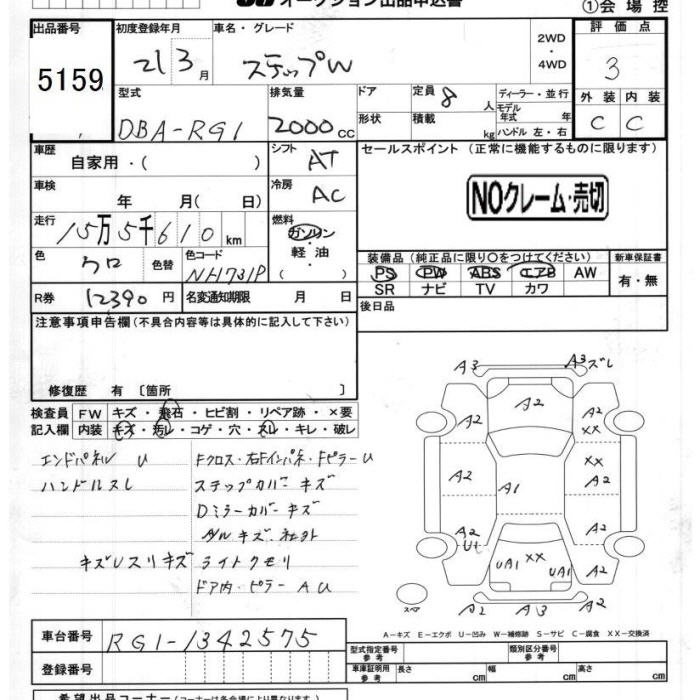 オークション出品申込書
①会場控
出品番号 初度登録年月 車名・グレード 2WD・4WD 評価点
5159 21 3月 ステップW 3
型式 排気量 ドア 定員 8人 ディーラー・並行 外装 内装
DBA-RG1 2000cc 形状 積載 kg モデル年式 年 ハンドル 左・右 C C
車歴 自家用・( ) シフト AT セールスポイント (正常に機能するものに限ります)
車検 年 月( 日) 冷房 AC NOクレーム・売切
走行 15万5千610km 燃料 ガソリン・軽油・( )
色 クロ 色替 色コード NH731P 装備品 (純正品に限り○をつけてください) 新車保証書
PS PW ABS エアB AW 有・無
SR ナビ TV カワ
R券 12390円 名変通知期限 月 日 後日品
注意事項申告欄(不具合内容等は具体的に記入して下さい)
修復歴 有〔箇所 〕
検査員 FW キズ・飛石・ヒビ割・リペア跡・×要
記入欄 内装 キズ・汚レ・コゲ・穴・スレ・キレ・破レ
エンドパネル U Fクロス・右Fインパネ・Fピラー U
ハンドルスレ ステップカバー キズ
Dミラーカバー キズ
キズ ライトクモリ
ドア内・ピラー A U
A3 A3ズレ
A2 A2 A2 XX
A2 A1 XX A2
A2 U1 A2
UA1 XX UA1 A2
スペア A2 A3 A2
A-キズ E-エクボ U-凹み W-補修跡 S-サビ C-腐食 XX-交換済
車台番号 RG1-1342575
型式指定番号 参考 類別区分番号 参考
登録番号 車庫証明用 参考 長さ cm 幅 cm 高さ cm
希望出品コーナー(コーナーは各会場により異なります)